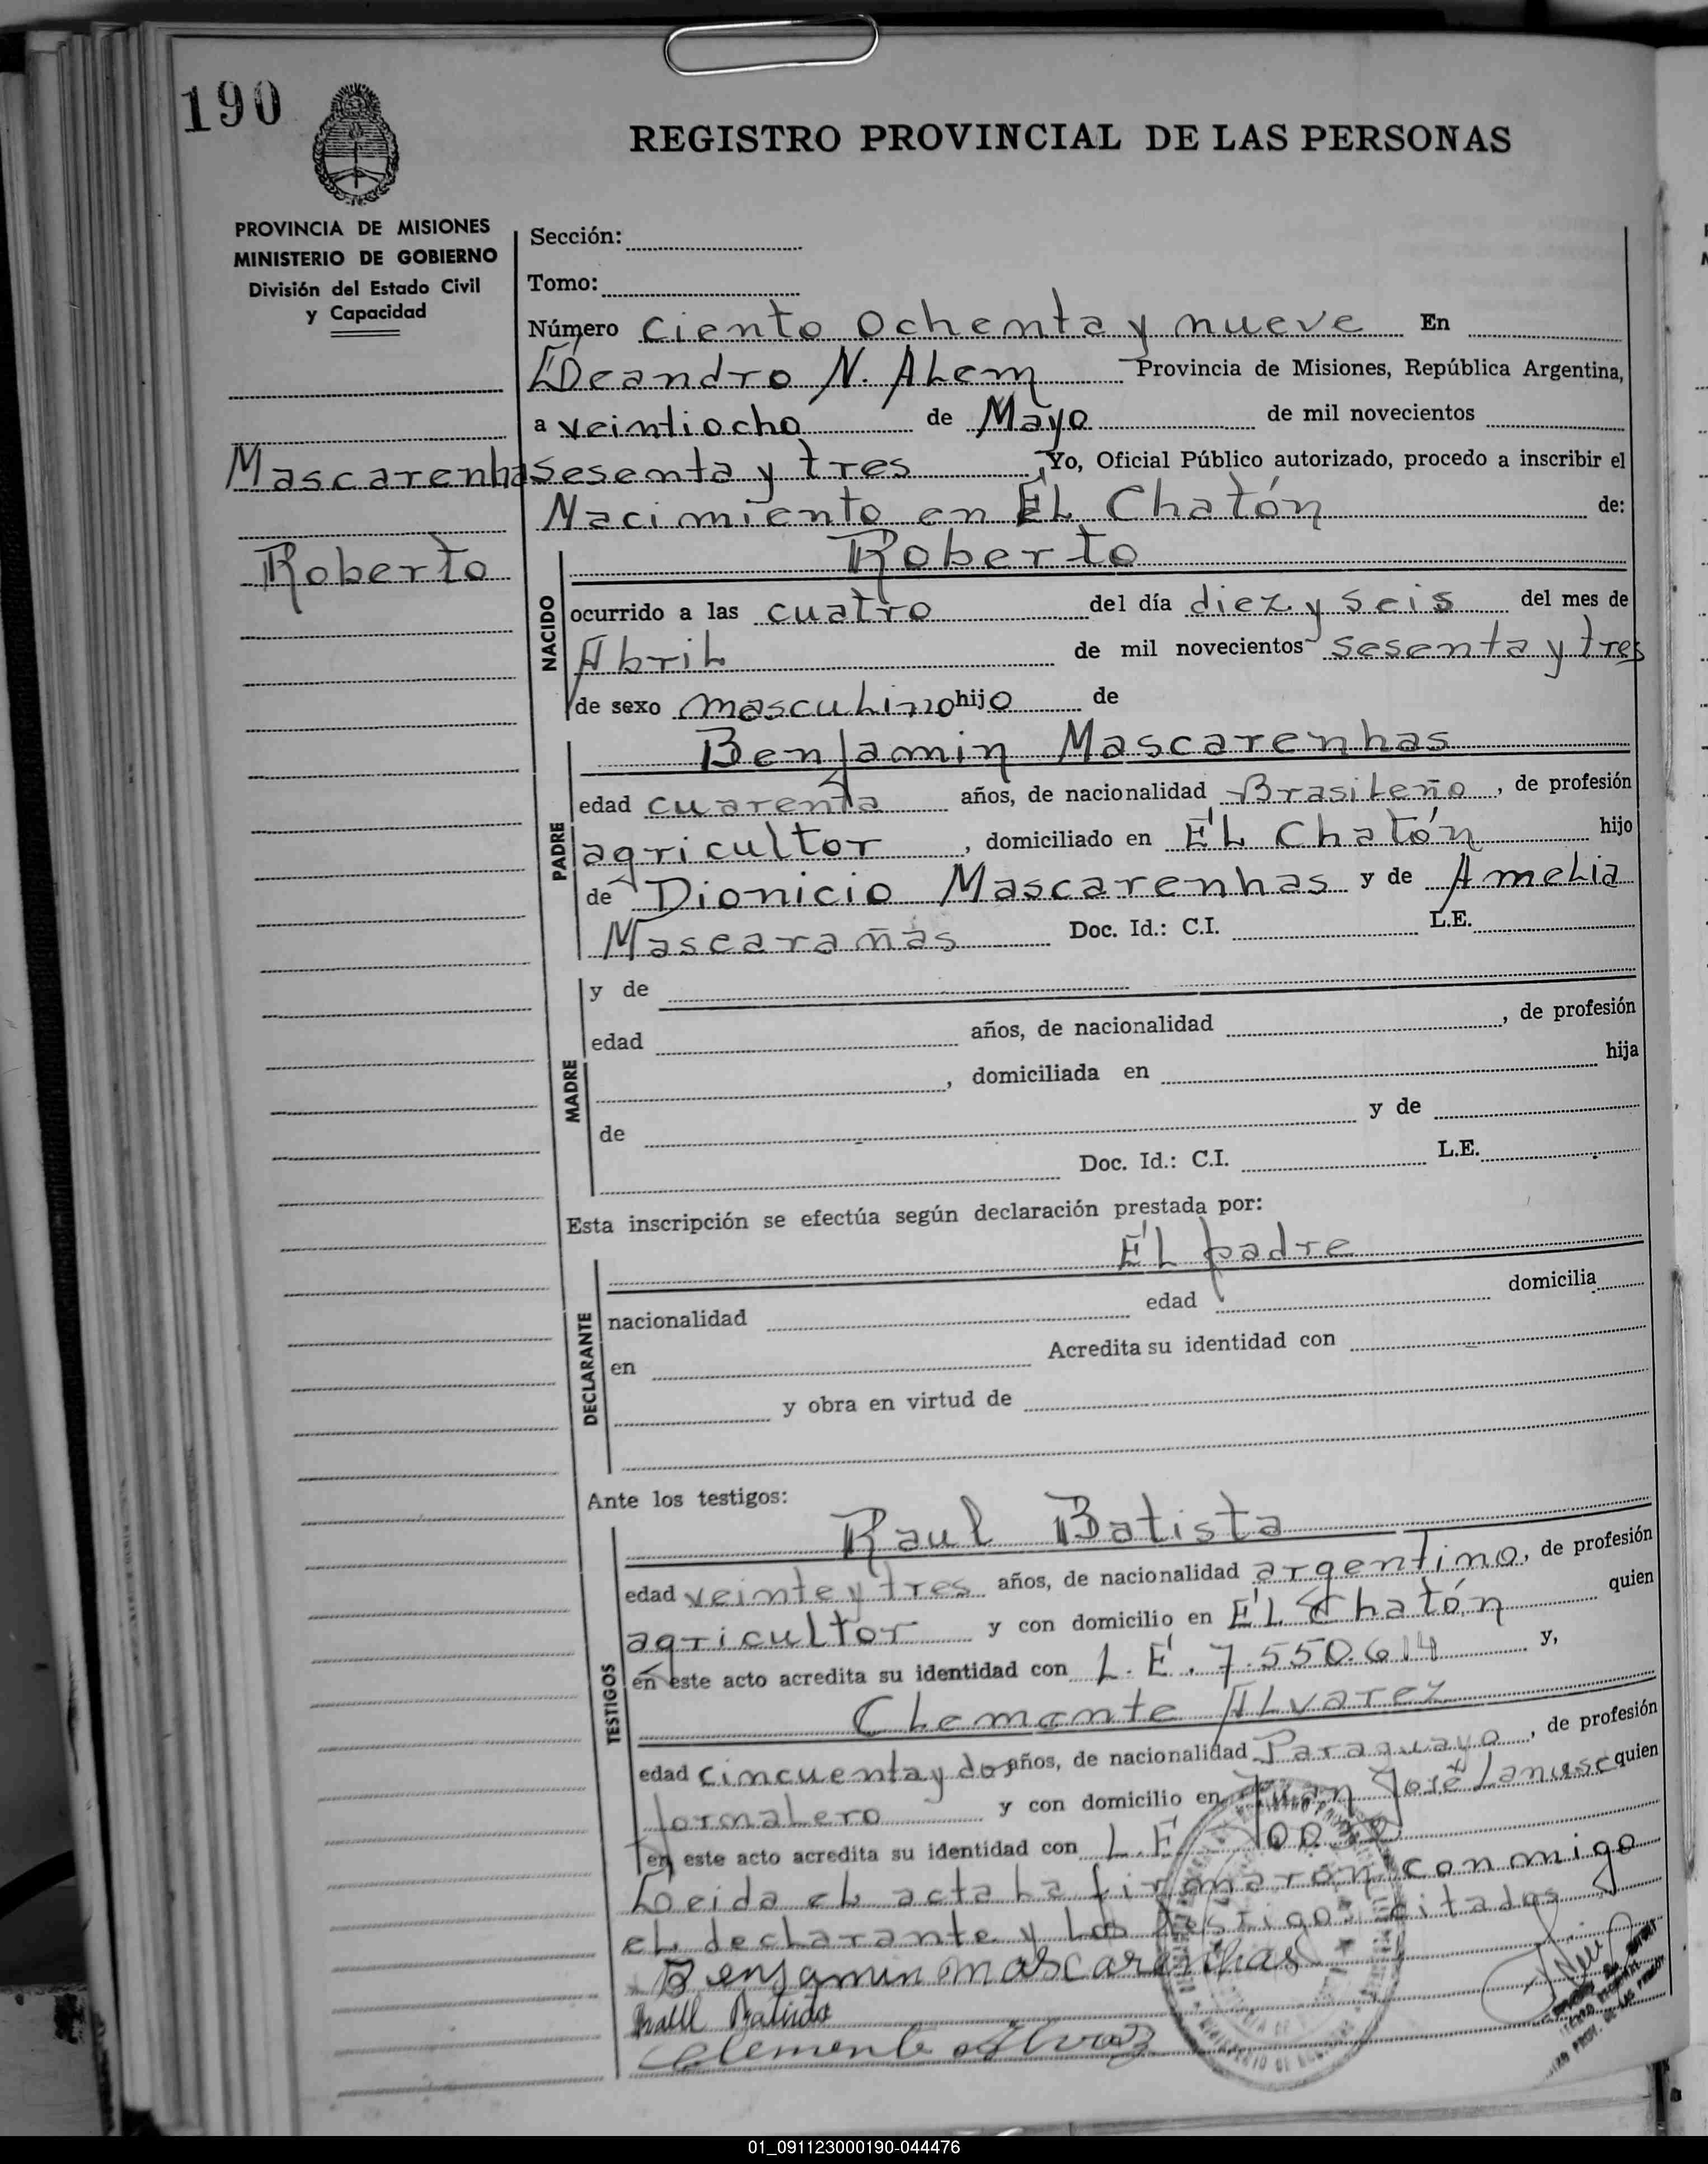 190
REGISTRO PROVINCIAL DE LAS PERSONAS
PROVINCIA DE MISIONES
MINISTERIO DE GOBIERNO
División del Estado Civil
y Capacidad
Mascarenhas
Roberto
Sección:
Tomo:
Número ciento Ochenta y nueve En
Leandro N. ALem Provincia de Misiones, República Argentina,
a veintiocho de Mayo de mil novecientos
sesenta y tres, Yo, Oficial Público autorizado, procedo a inscribir el
Nacimiento en EL Chatón de:
Roberto
NACIDO
ocurrido a las cuatro del día diez y seis del mes de
AbriL de mil novecientos sesenta y tres
de sexo mascuLino hijo de
Benjamin Mascarenhas
PADRE
edad cuarenta años, de nacionalidad BrasiLeño, de profesión
agricultor, domiciliado en EL Chatón hijo
de Dionicio Mascarenhas y de AmeLia
Mascarañas Doc. Id.: C.I. L.E.
MADRE
y de
edad años, de nacionalidad , de profesión
, domiciliada en hija
de y de
Doc. Id.: C.I. L.E.
Esta inscripción se efectúa según declaración prestada por:
EL padre
DECLARANTE
nacionalidad edad domicilia
en Acredita su identidad con
y obra en virtud de
Ante los testigos:
Raul Batista
TESTIGOS
edad veinte y tres años, de nacionalidad argentino, de profesión
agricultor y con domicilio en EL Chatón quien
en este acto acredita su identidad con L.E. 7.550.614 y,
CLemente ALvarez
edad cincuenta y dos años, de nacionalidad Paraguayo, de profesión
JornaLero y con domicilio en Juan José Lanusc quien
en este acto acredita su identidad con L.E.
Leida eL acta La firmaron conmigo
eL decLarante y Los testigos citados
Benjamin mascarenhas
Raul Batista
Clemente Alvarez
01_091123000190-044476